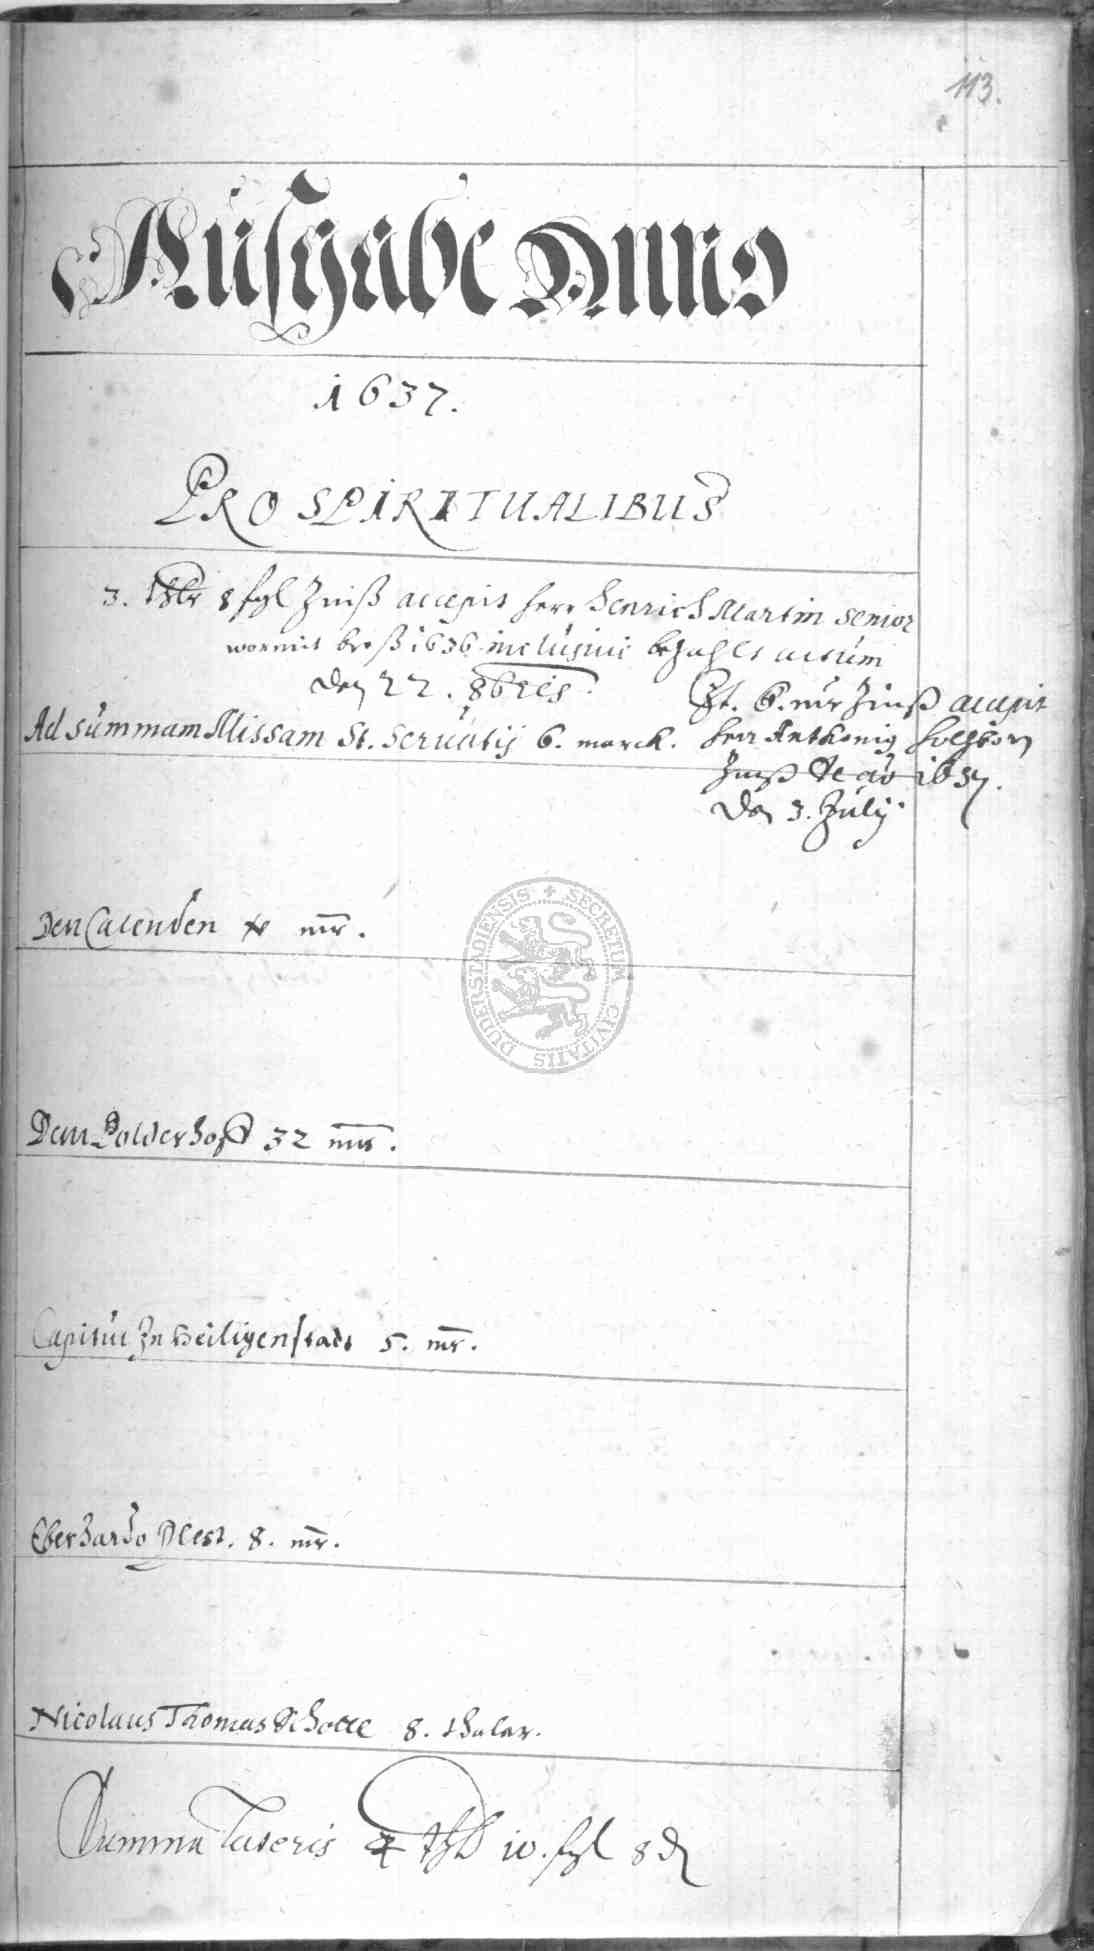 113.
Ausgabe Anno
1637.
PRO SPIRITUALIBUS
3. thlr 8 sgl Zinß accepit herr Henrich Martin senior
wormit bes 1636 inclusive bezahlt actum
den 22. 8bris.
Ad summam Missam St. Servatij 6. marck.
6. mr Zinß accepit
herr Anthonig
Zinß de ao 1637.
den 3. Julij
Den Calenden mr.
Dem Polderhoff 32 mr.
Capitul zu Heiligenstadt 5. mr.
Eberhardo 8. mr.
Nicolaus Thomas Schotte 8. thaler.
Summa lateris 4 thl 10. sgl 8 d
SECRETUM CIVITATIS DUDERSTADIENSIS